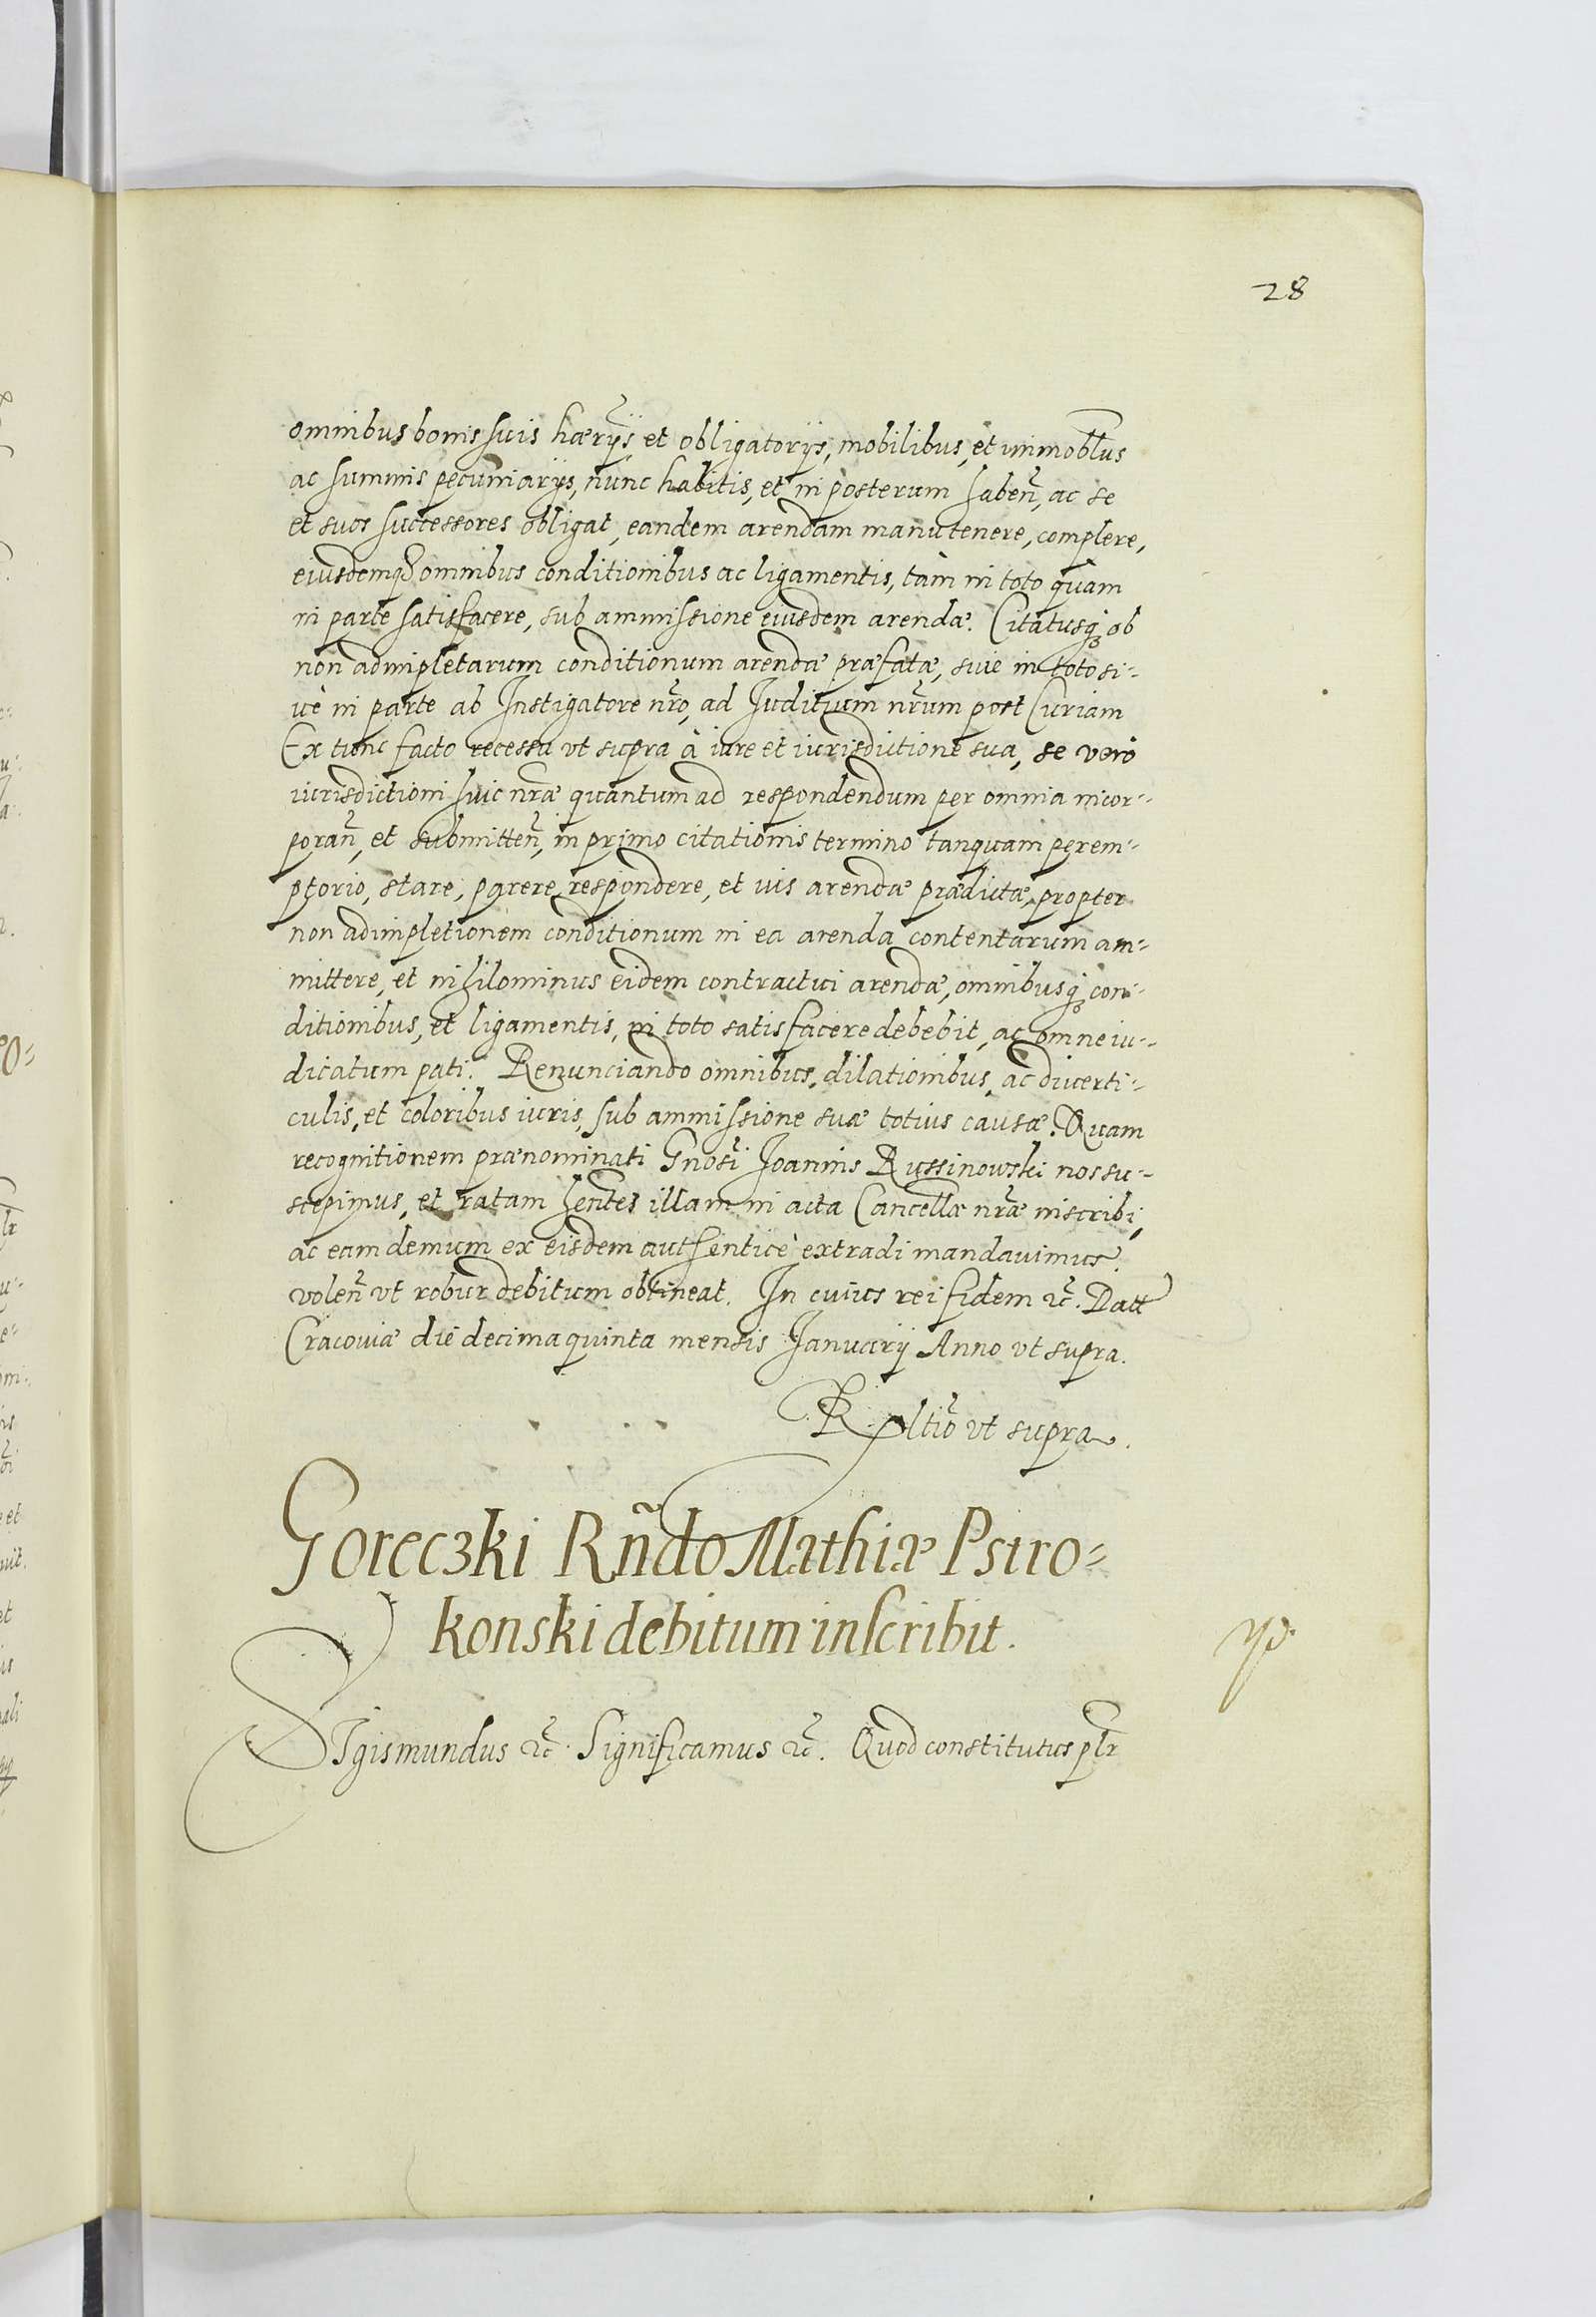 28
omnibus bonis suis hæryȷs̃, et obligatorijs, mobilibus, et immobl̃bus
ac summis pecuniarijs, nunc habitis, et in posterum haben̄, ac se
et suos successores obligat, eandem arendam manutenere, complere,
eiusdemq₃ omnibus conditionibus ac ligamentis, tàm in toto quàm
in parte satisfacere, sub ammissione eiusdem arendæ. Citatusq₃ ob
non adimpletarum conditionum arendæ præfatæ, siue in toto si-
uè in parte ab Instigatore nr̃o, ad Juditium nr̃um post Curiam
Ex tunc facto recessu vt supra à iure et iurisdictione sua, se vero
iurisdictioni huic nr̃æ quantum ad respondendum per omnia incor-
poran̄, et submitten̄, in primo citationis termino tanquam perem-
ptorio, stare, parere, respondere, et uis arendæ prædictæ, propter
non adimpletionem conditionum in ea arenda contentarum am-
mittere, et nihilominus eidem contractui arendæ, omnibusq₃ con-
ditionibus, et ligamentis, in toto satisfacere debebit, ac omne iu-
dicatum pati. Renunciando omnibus, dilationibus, ac diuerti-
culis, et coloribus iuris, sub ammissione suæ totius causæ. Quam
recognitionem prænominati Gnosi̅ Joannis Russinowski nos su-
scepimus, et ratam hentes̃ illam in acta Cancellæ̃ nr̃æ inscribi,
ac eam demum ex eisdem authenticè extradi mandauimus.
volen̄ vt robur debitum obtineat. In cuius rei fidem ꝛc̃. Datt
Cracouiæ die decima quinta mensis Januarij Anno vt supra.
R ltio̅ vt supra.
Goreczki Rñdo Mathiæ Pstro-
konski debitum inscribit.
SIgismundus ꝛc̃. Significamus ꝛc̃. Quod constitutus plr̃